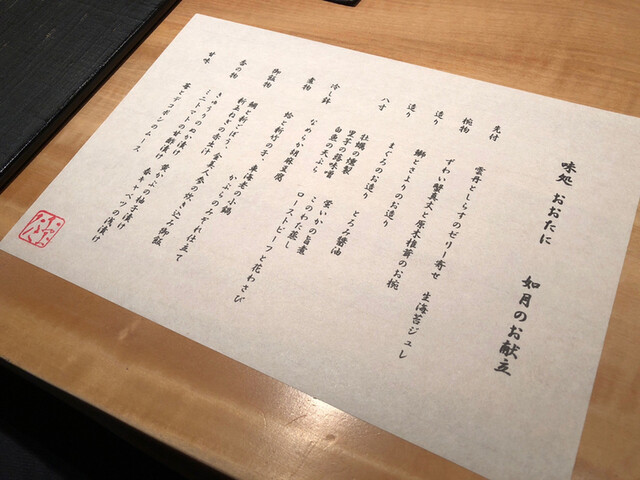 味処 おおたに 如月のお献立
先付 雲丹としらすのゼリー寄せ 生海苔ジュレ
椀物 ずわい蟹真丈と原木椎茸のお椀
造り 鰤とさよりのお造り
造り まぐろのお造り とろみ醤油
八寸 牡蠣の燻製 蛍いかの旨煮
里芋の蕗味噌 このわた蒸し
白魚の天ぷら ローストビーフと花わさび
冷し鉢 なめらか胡麻豆腐
煮物 蛤と新竹の子、車海老の小鍋
御飯物 鯛と新ごぼう、金美人参の炊き込み御飯
新玉ねぎの赤出汁
香の物 きゅうりのぬか漬け 黄かぶの柚子漬け
ミニトマトの甘酢漬け 春キャベツの浅漬け
甘味 苺とデコポンのムース